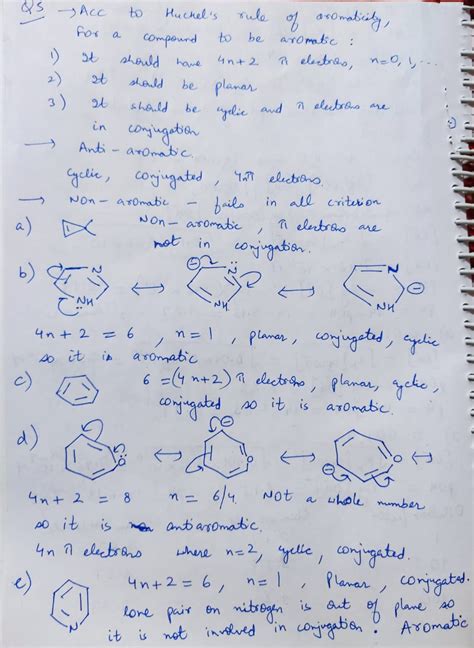 Q5 → Acc to Huckel's rule of aromaticity,
For a compound to be aromatic :
1) It should have 4n+2 π electrons, n=0,1,...
2) It should be planar
3) It should be cyclic and π electrons are
in conjugation
→ Anti-aromatic.
Cyclic, conjugated, 4π electrons.
→ Non-aromatic - fails in all criterion
a) Non-aromatic, π electrons are
not in conjugation.
b) N NH ↔ ⊖ N NH ↔ N NH ⊖
4n+2 = 6, n=1, planar, conjugated, cyclic
so it is aromatic
c) 6 = (4n+2) π electrons, planar, cyclic,
conjugated so it is aromatic.
d) O ↔ ⊖ O ↔ ⊖ O ↔
4n+2 = 8 n = 6/4 NOT a whole number
so it is antiaromatic.
4n π electrons where n=2, cyclic, conjugated.
e) N 4n+2 = 6, n=1, Planar, conjugated.
lone pair on nitrogen is out of plane so
it is not involved in conjugation. Aromatic